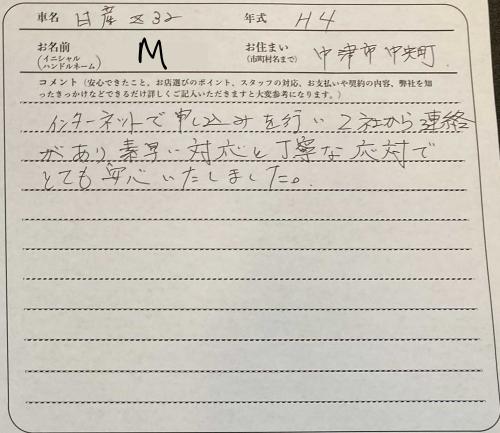 車名 日産 Z32 年式 H4
お名前 (イニシャル ハンドルネーム) M お住まい (市町村名まで) 中津市 中央町
コメント (安心できたこと、お店選びのポイント、スタッフの対応、お支払いや契約の内容、弊社を知
ったきっかけなどできるだけ詳しくご記入いただきますと大変参考になります。)
インターネットで申し込みを行い2社から連絡
があり、素早い対応と丁寧な応対で
とても安心いたしました。